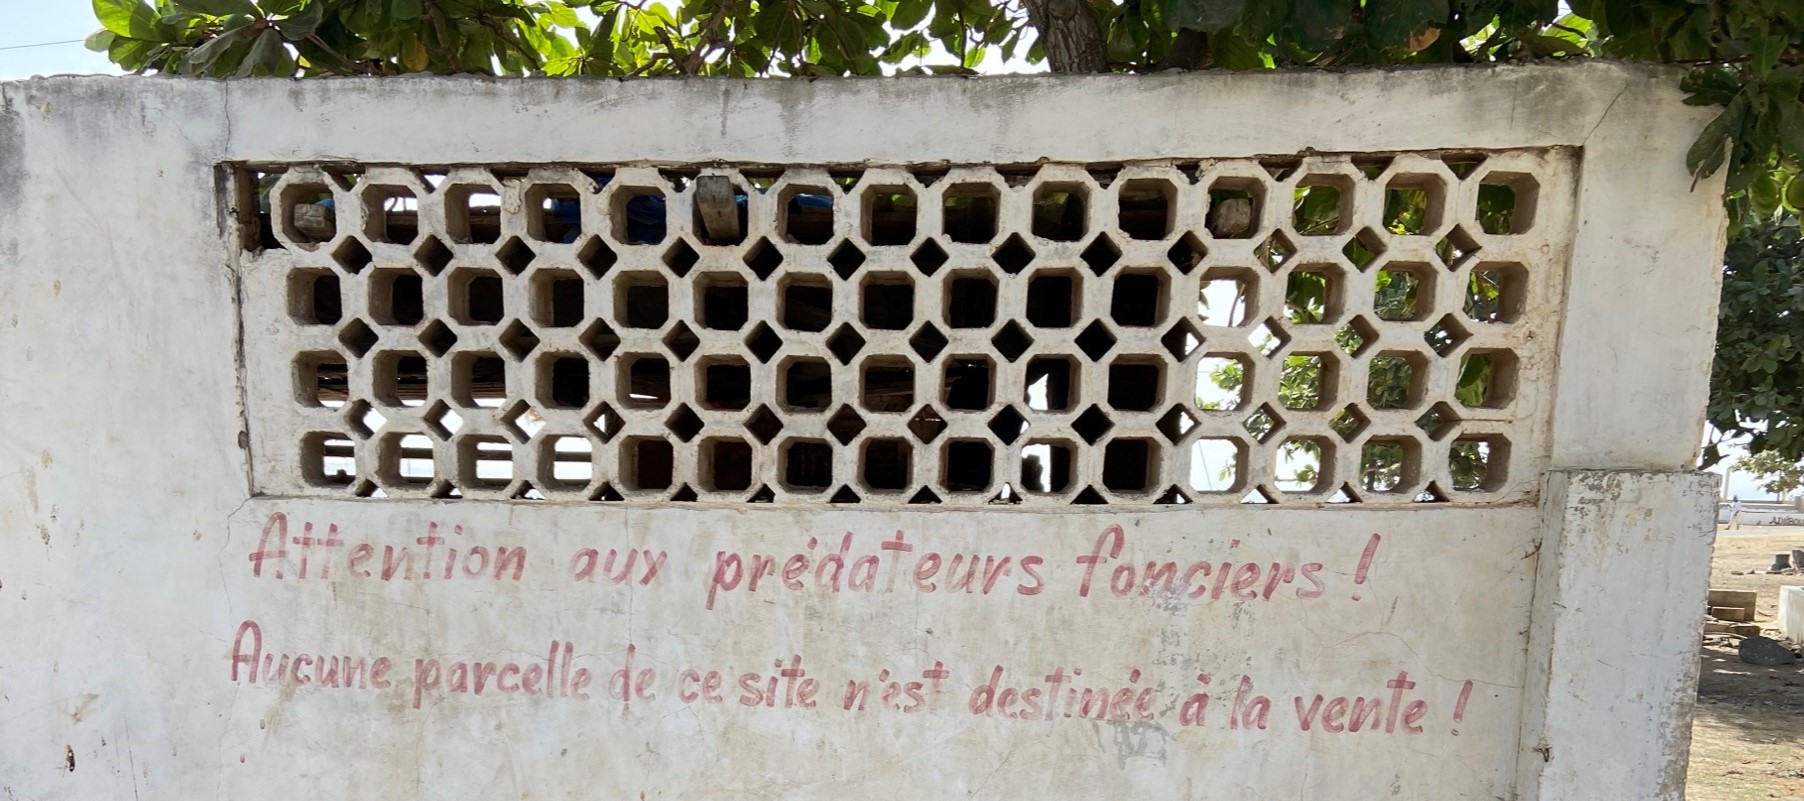 Attention aux prédateurs fonciers !
Aucune parcelle de ce site n'est destinée à la vente !